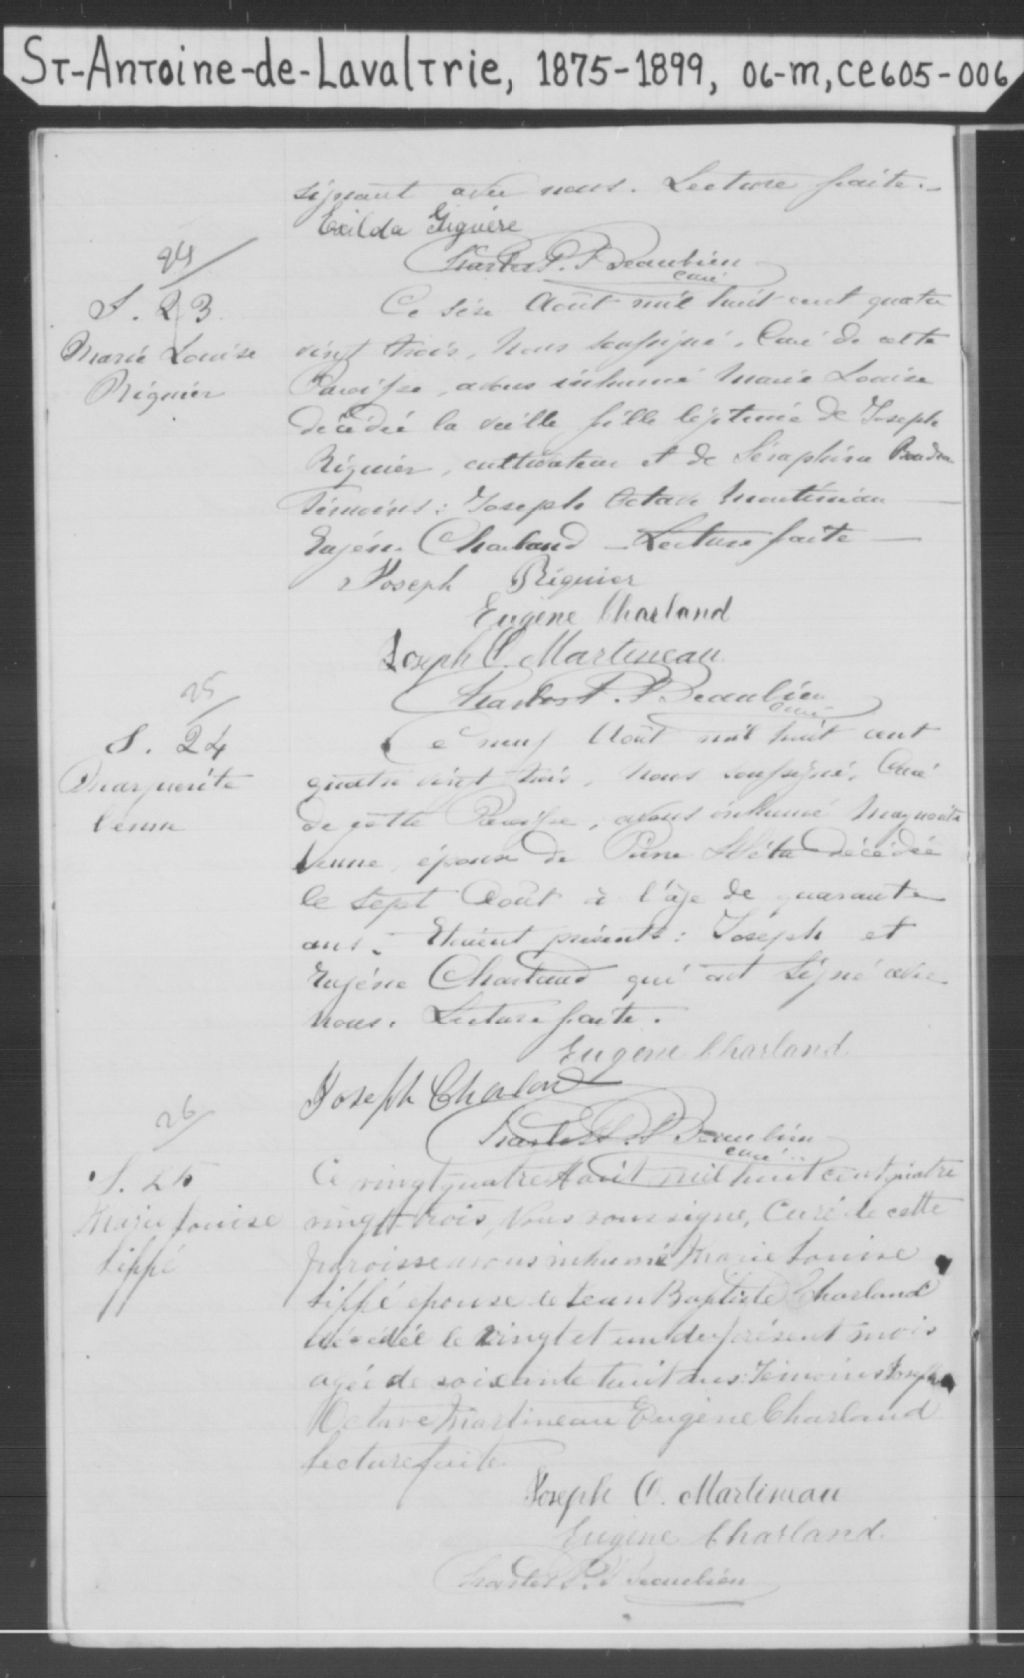 ST-Antoine-de-Lavaltrie, 1875-1899, 06-m, CE605-006
signant avec nous. Lecture faite.
Exilda Giguère
Charles P. F. Beaubien
curé
24
S. 23
Marie Louise
Riguier
Ce Août mil huit cent quatre
vingt trois, Nous soussigné, Curé de cette
Paroisse, avons inhumé Marie Louise
décédée la veille fille légitime de Joseph
Riguier, cultivateur et de Séraphine
Témoins: Joseph Octave Martineau
Eugène Charland - Lecture faite
Joseph Riguier
Eugène Charland
Joseph O. Martineau
Charles P. F. Beaubien
curé
25
S. 24
Marguerite
Venne
Ce neuf Août mil huit cent
quatre vingt trois, Nous soussigné, Curé
de cette Paroisse, avons inhumé Marguerite
Venne, épouse de décédée
le sept Août à l'âge de quarante
ans. Etaient présents: Joseph et
Eugène Charland qui ont signé avec
nous. Lecture faite.
Eugène Charland
Joseph Charland
Charles P. F. Beaubien
curé
26
S. 25
Marie Louise
Tiffé
Ce vingt quatre Août mil huit cent quatre
vingt trois, Nous soussigné, Curé de cette
paroisse avons inhumé Marie Louise
Tiffé épouse de Jean Baptiste Charland
décédée le vingt et un du présent mois
agée de soixante huit ans. Témoins Joseph
Octave Martineau Eugène Charland
Lecture faite.
Joseph O. Martineau
Eugène Charland
Charles P. F. Beaubien